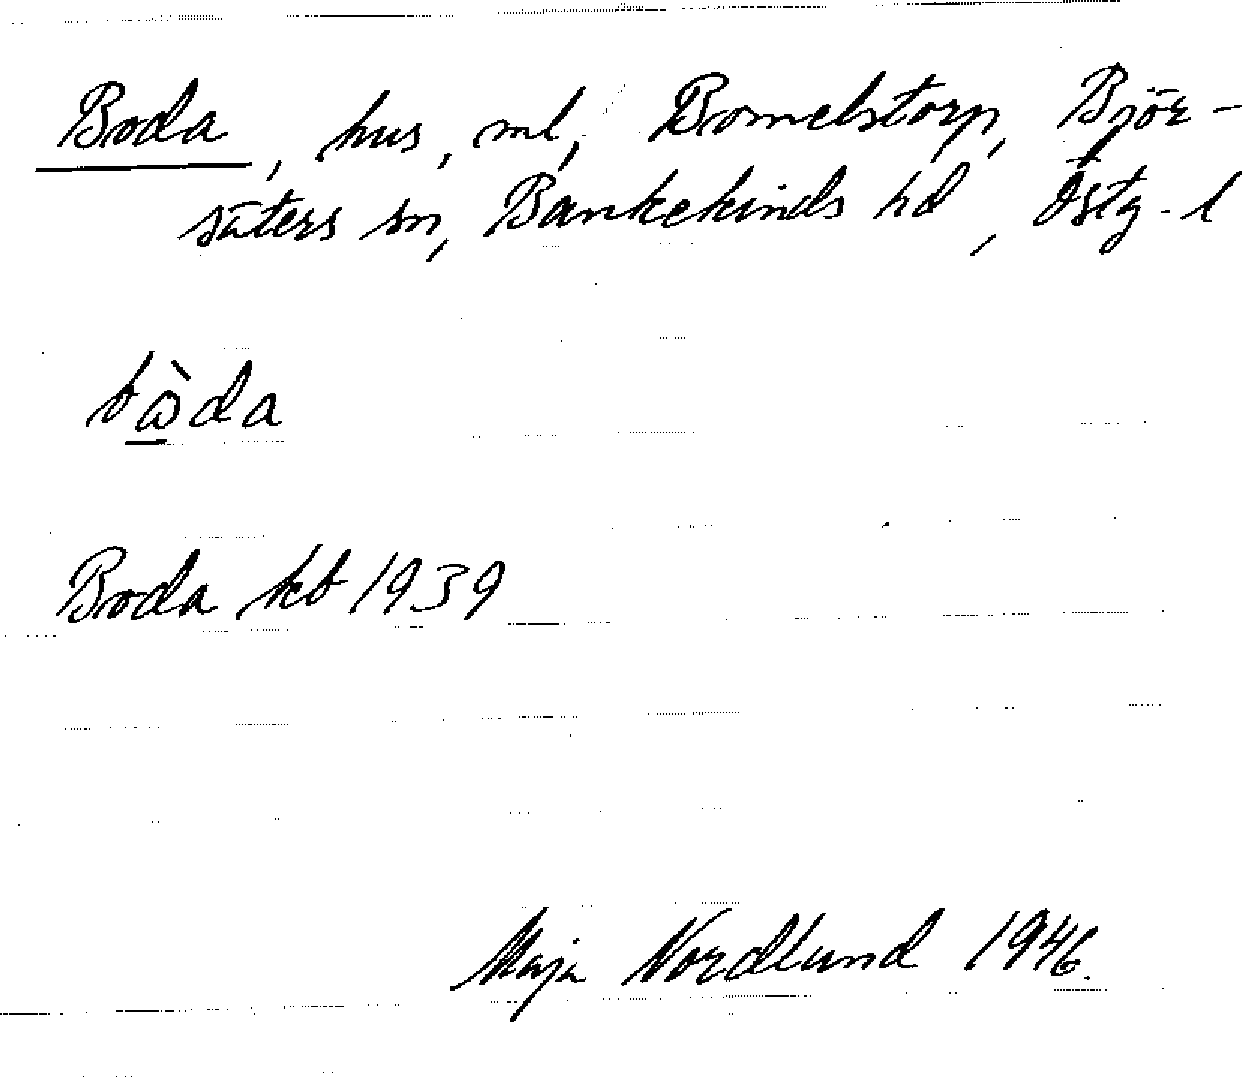 Boda, hus, ml, Bomelstorp, Björ-
säters sn, Bankekinds hd, Östg-l
bὼda
Boda kb 1939
Maja Nordlund 1946.